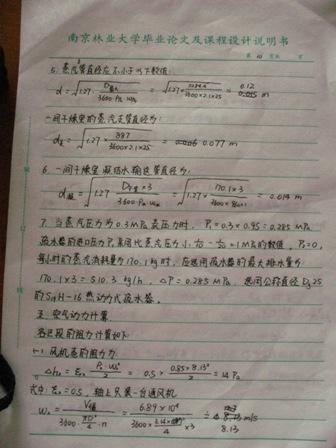 南京林业大学毕业论文及课程设计说明书
第 10 页
5. 蒸汽管直径应不小于以下数值:
d = √1.27· / 3600·ρ₀·ω₀ = √1.27× / 3600×2.1×25 = 0.12 m
一间干燥室的蒸汽支管直径为:
d支 = √887 / 3600×2.1×25 = 0.077 m
6. 一间干燥室凝结水输送管直径为:
d凝 = √1.27 ×3 / 3600·ρ·ω = √1.27× 170.1×3 / 3600× = 0.014 m
7. 当蒸汽压力为0.3MPa表压力时, P₁=0.3×0.95=0.285MPa
疏水器的进口压力P₁采用比蒸汽压力小 MPa的数值, P₂=0,
每小时的蒸汽消耗量为170.1kg时, 应选用疏水器的最大排水量为:
170.1×3=510.3 kg/h, ΔP=0.285MPa, 选用公称直径Dg25
的S19H-16热动力式疏水器.
五. 空气动力计算.
各区段的阻力计算如下:
1-1. 风机壳的阻力为:
Δh = ξ · ρ·ω² / 2 = 0.5 × 0.85×8.13² / 2 = 14 Pa
式中: ξ=0.5, 轴上只装一台通风机
ω = V循 / 3600· πD²/4 ·n = 6.89×10⁴ / 3600× ×3 = 8.13 m/s